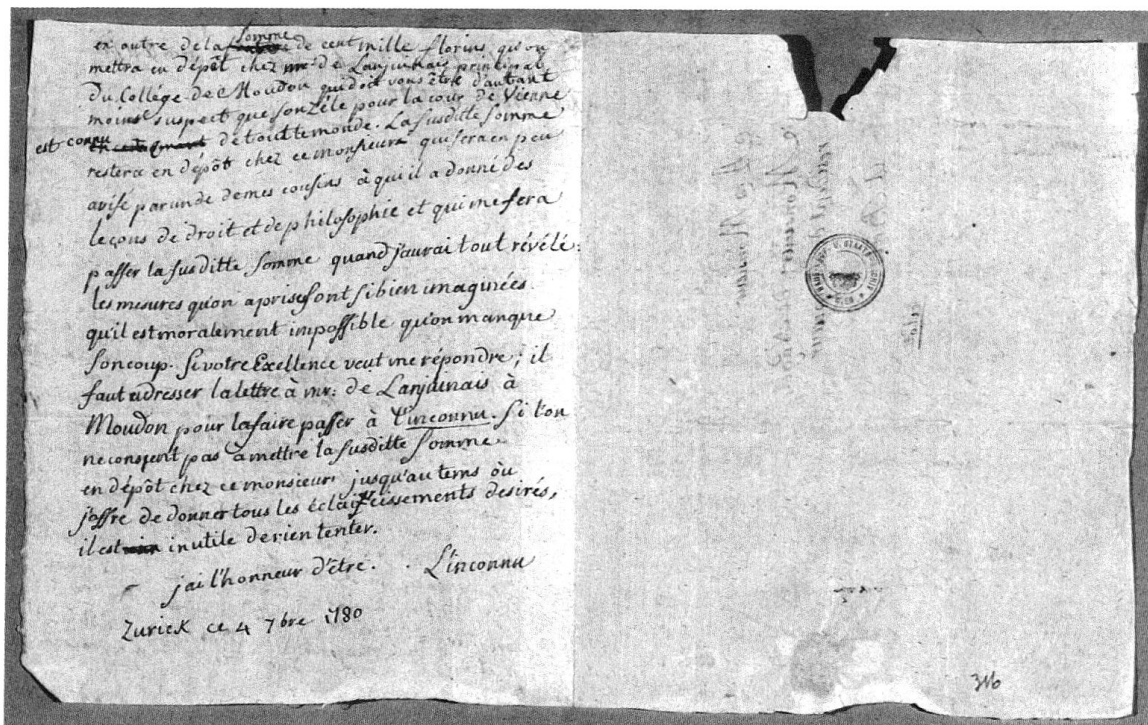 en outre de la somme de cent mille florins qu'on
mettra en dépôt chez mr. de Lanjuinais principal
du Collége de Moudon qui doit vous être d'autant
moins suspect que son zéle pour la cour de Vienne
est connu de tout le monde. La susditte somme
restera en dépôt chez ce monsieur qui sera en peu
avisé par un de mes cousins à qui il a donné des
leçons de droit et de philosophie et qui me fera
passer la susditte somme quand j'aurai tout révélé:
les mesures qu'on a prises sont si bien imaginées
qu'il est moralement impossible qu'on manque
son coup. Si votre Excellence veut me répondre; il
faut adresser la lettre à mr: de Lanjuinais à
Moudon pour la faire passer à l'inconnu. Si l'on
ne consent pas a mettre la susditte somme
en dépôt chez ce monsieur jusqu'au tems où
j'offre de donner tous les éclaircissements desirés,
il est inutile de rien tenter.
j'ai l'honneur d'être. L'inconnu
Zurick ce 4 7bre 1780
316